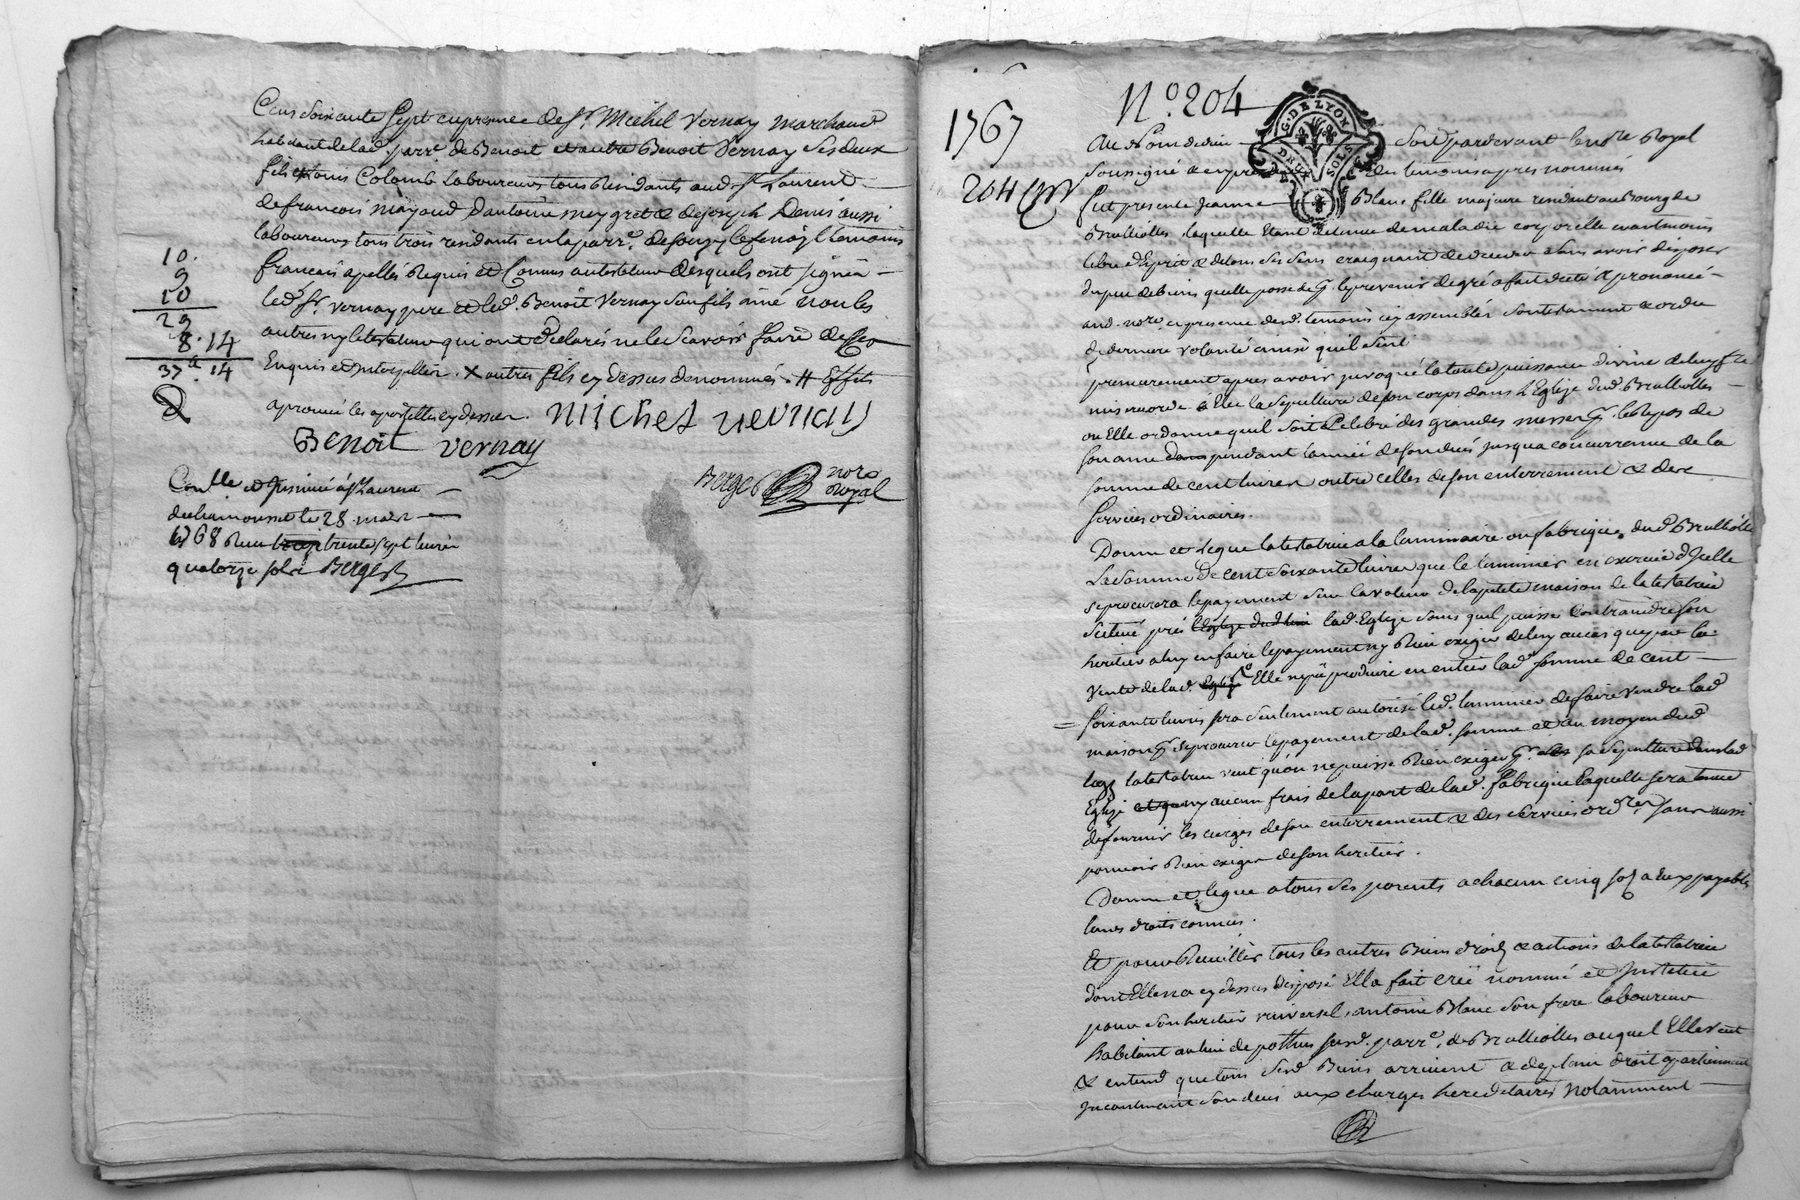 Cens soixante sept en presence de Sr. Michel Vernay marchand
habitant de lad. parr.e de Benoit et autre Benoit Vernay ses deux
fils Colomb Laboureurs tous Residants aud. St. Laurent
de francois mayoud d'antoine meygret & de joseph Denis aussi
laboureurs tous trois residants en la parr.e de Souzy temoins
francais apellés Requis et Connus au testateur desquels ont signés
led. Sr. Vernay pere et led. Benoit Vernay son fils ainé non les
autres ny le testateur qui ont declarés ne le scavoir faire de ce
Enquis et Interpellés. X autres fils cy dessus denommés. H Effets
aprouvé les apostilles cy dessus. michel vernay
Benoit vernay
Berger nore
Royal
10.
9
10
29
8. 14
37 14
Conlle et Insinué a St Laurent
de chamousset le 28 mars
1768 Reçu trente sept livres
quatorze sols Berger
1767
204
No. 204
G. DE LYON
DEUX SOLS
Au Nom de dieu Soit pardevant le nore Royal
Soussigné & en presence des temoins apres nommés
fut presente jeanne Blanc fille majeure residant au Bourg de
Brulliolles laquelle Etant detenue de maladie corporelle neantmoins
libre d'Esprit & de tous ses sens craignant de deceder sans avoir disposer
du peu de biens quelle possede pr. le prevenir de gré a fait dicté & prononcé
aud. nore en presence desd. temoins icy assemblés son testament & ordce
de derniere volonté ainsi quil suit
premierement apres avoir invoqué la toute puissance divine
misericorde Elle la sepulture de son corps dans l'Eglize dud. Brulliolles
ou Elle ordonne quil soit Celebré des grandes messes pr. le repos de
son ame dans pendant l'année de son decés jusqua concurrence de la
somme de cent livres outre celles de son enterrement & des
services ordinaires.
Donne et Legue la testatrice a la luminaire ou fabrique dud. Brulliolles
La somme de cent soixante livres que le luminier en exercice d'Icelle
se procurera le payement sur la valeur de la petite maison de la testatrice
Scituée prés l'Eglize dud. lieu lad. Eglize sans quil puisse Contraindre son
heritier a luy en faire le payement ny Rien exiger de luy au cas que par la
vente de lad. Eglize Elle ne put produire en entier lad. somme de cent
soixante livres sera seulement autorisé led. luminier de faire vendre lad.
maison pr. se procurer le payement de lad. somme et au moyen dud.
legs la testatrice veut qu'on ne puisse Rien exiger pr. sa sepulture dans lad.
Eglize et que ny aucun frais de la part de lad. fabrique laquelle sera tenue
de fournir les cierges de son enterrement & des services ordres. sans aussi
pouvoir Rien exiger de son heritier.
Donne et legue a tous ses parents a chacun cinq sols a Eux payables
leurs droits connus.
Et pour Recuillir tous les autres Biens droits & actions de la testatrice
dont Elle n'a cy dessus disposé Elle fait créé nommé et Institué
pour son heritier universel, antoine Blanc son frere laboureur
habitant au lieu de pothus susd. parr.e de Brulliolles auquel Elle veut
& entend que tous sesd. Biens arrivent & de plein droit apartiennent
Incontinant son deces aux charges hereditaires Notamment